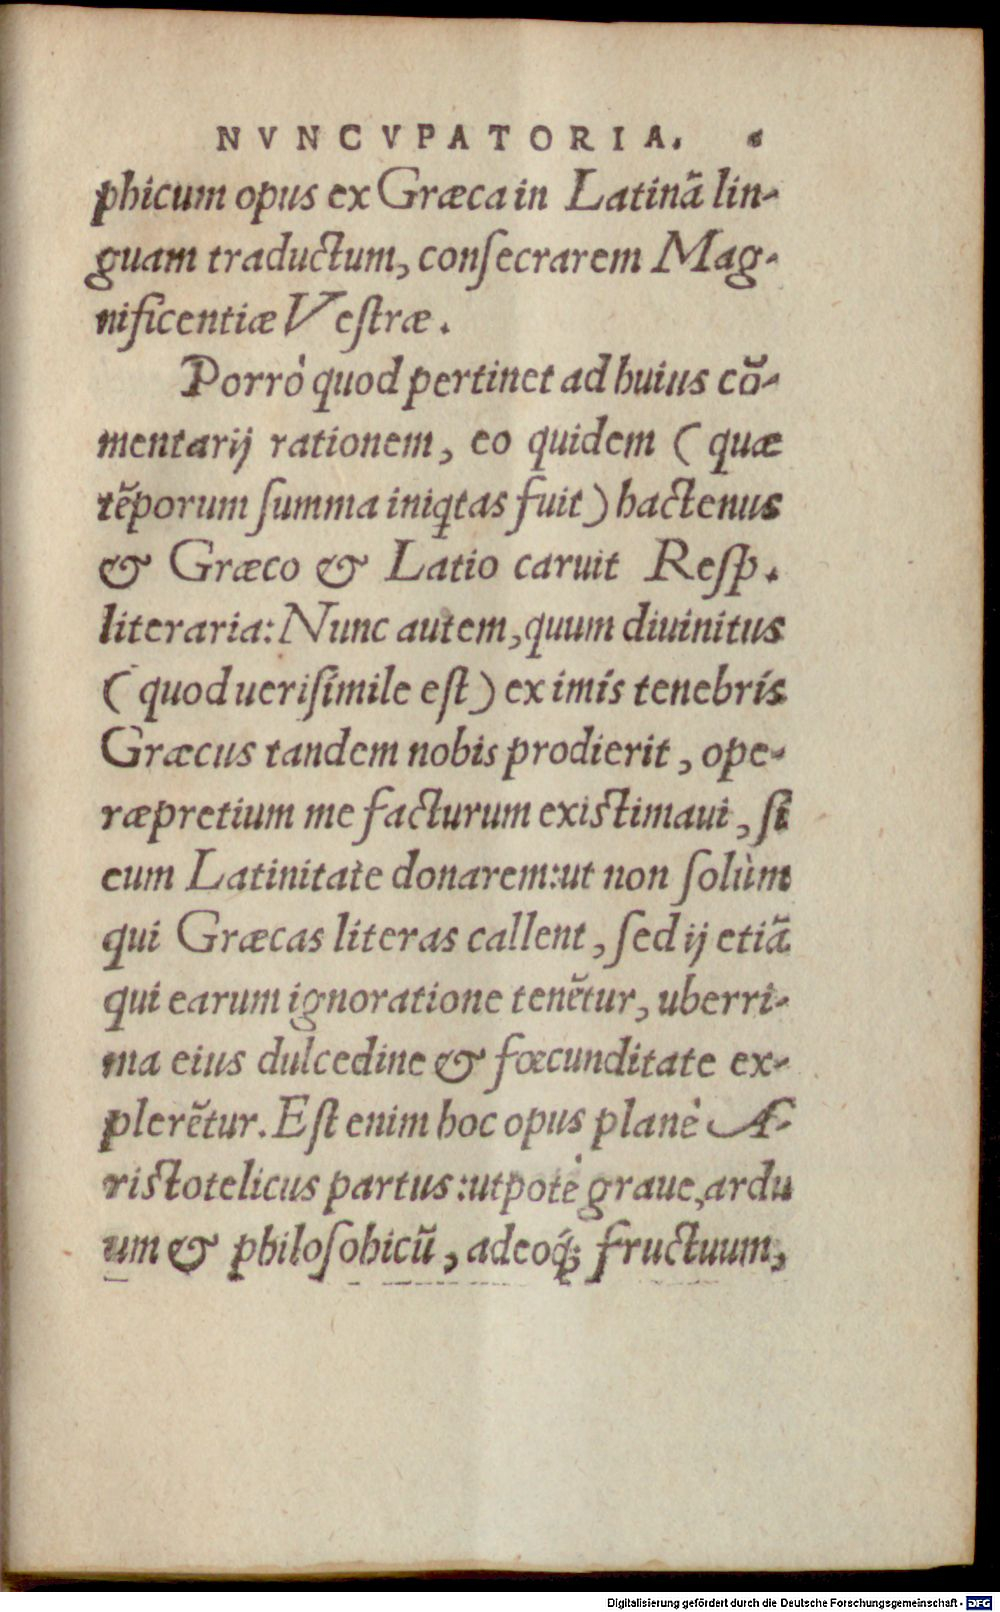 NVNCVPATORIA.
phicum opus ex Græca in Latinā lin-
guam traductum, conſecrarem Mag-
nificentiæ Veſtræ.
Porrò quod pertinet ad huius cō-
mentarij rationem, eo quidem (quæ
tēporum ſumma iniqtas fuit) hactenus
& Græco & Latio caruit Reſp.
literaria: Nunc autem, quum diuinitus
(quod ueriſimile eſt) ex imis tenebris
Græcus tandem nobis prodierit, ope-
ræpretium me facturum existimaui, ſi
eum Latinitate donarem: ut non ſolùm
qui Græcas literas callent, ſed ij etiā
qui earum ignoratione tenētur, uberri-
ma eius dulcedine & fœcunditate ex-
plerētur. Eſt enim hoc opus planè A-
ristotelicus partus: utpotè graue, ardu
um & philoſohicū, adeoq́; fructuum,
Digitalisierung gefördert durch die Deutsche Forschungsgemeinschaft - DFG